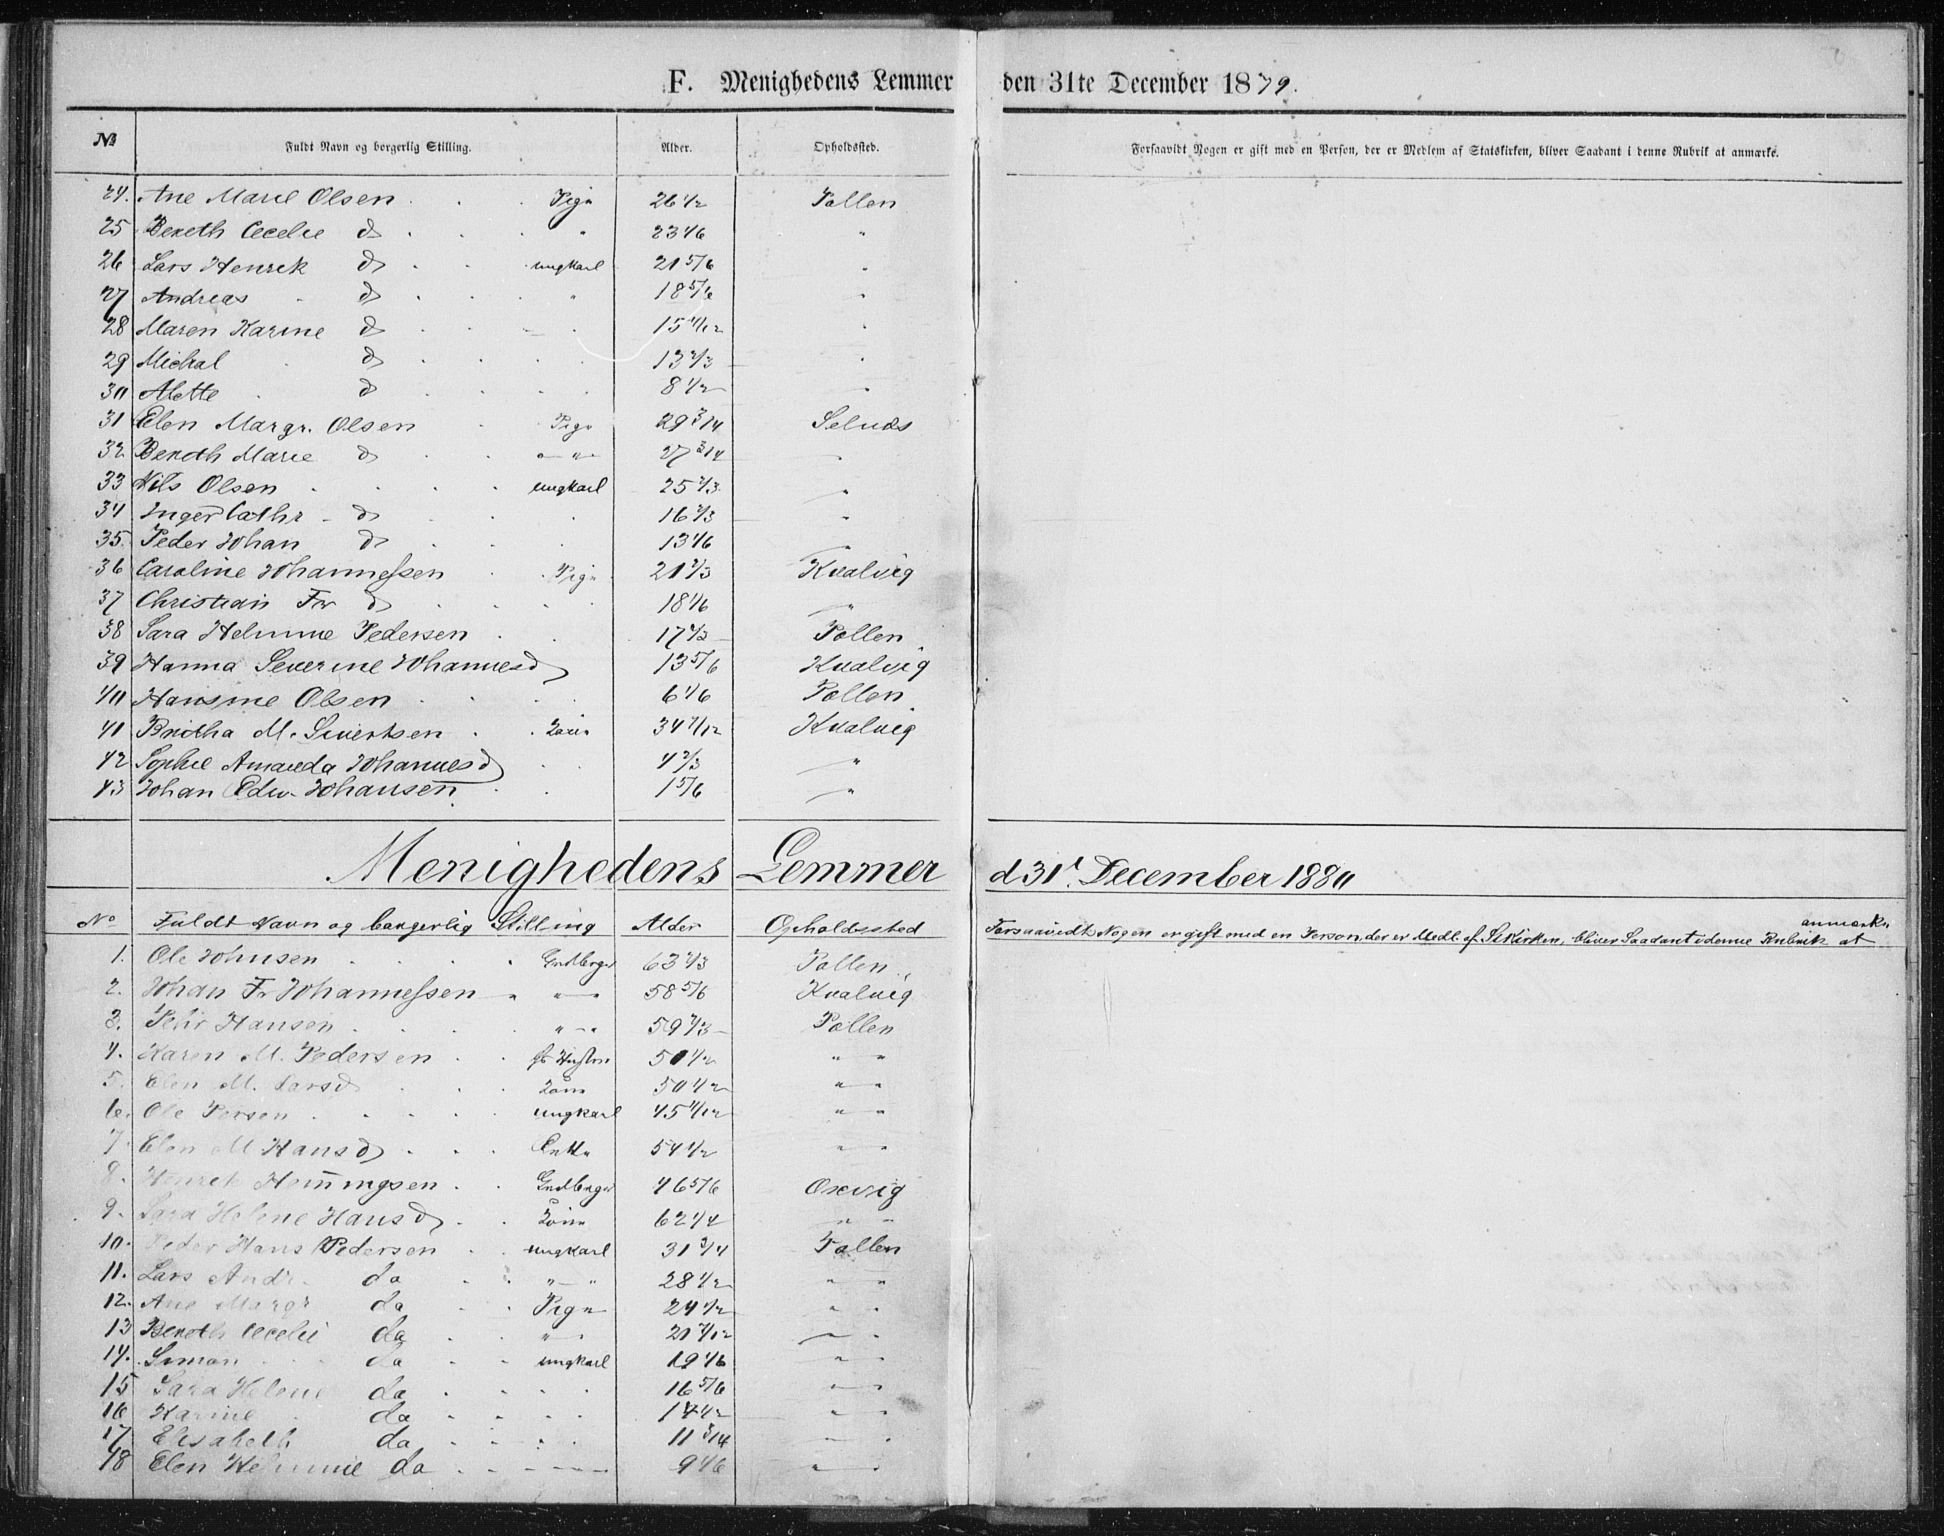 F. Menighedens Lemmer den 31te December 1879.
№ Fuldt Navn og borgerlig Stilling. Alder. Opholdssted. Forsaavidt Nogen er gift med en Person, der er Medlem af Statskirken, bliver Saadant i denne Rubrik at anmærke.
24. Ane Marie Olsen Pige 26 1/2 Pollen
25 Bereth Cecelie do " 23 1/6 "
26 Lars Henrik do ungkarl 21 5/6 "
27 Andreas do " 18 5/6 "
28 Maren Karine do 15 "
29 Mickal do 13 "
30 Alette do 8 1/2 "
31 Elen Margr. Olsen Pige 29 3/4 Selnæs
32 Bereth Marie do " 27 3/4 "
33 Nils Olsen ungkarl 25 "
34 Inger Cathr do 16 "
35. Peder Johan do 13 1/6 "
36 Caroline Johannessen Pige 21 Kvalvig
37 Christian Fr do 18 1/6 "
38 Sara Helmine Pedersen 17 Pollen
39 Hanna Severine Johannesd 13 5/6 Kvalvig
40 Hansine Olsen 6 1/6 Pollen
41 Britha M. Sivertsen 34 Kvalvig
42 Sophie Amanda Johannesd 4 "
43 Johan Edw. Johansen 1 5/6 "
Menighedens Lemmer d 31t December 1880
No Fuldt Navn og borgerlig Stilling Alder Opholdssted Forsaavidt Nogen er gift med en Person, der er Medl. af Stkirken, bliver Saadant i denne Rubrik at anmærke
1. Ole Johnsen Grdbrger 63 Pollen
2. Johan Fr Johannessen " 58 5/6 Kvalvig
3. Pehr Hansen " 59 Pollen
4. Karen M. Pedersen 50 1/2 "
5. Elen M. Larsd 50 1/2 "
6. Ole Persen ungkarl 45 "
7. Elen M Hansd Enke 54 1/2 "
8. Henrik Henningsen Grdbrger 46 5/6 Oxvig
9. Sara Helene Hansd 62 1/4 "
10. Peder Hans Pedersen ungkarl 31 3/4 Pollen
11. Lars Andr. do " 28 1/2 "
12. Ane Margr do Pige 24 1/2 "
13 Bereth Cecelie do " 21 "
14. Simon do ungkarl 19 1/6 "
15 Sara Helene do 16 5/6 "
16 Karine do 14 1/2 "
17 Elisabeth do 11 3/4 "
18 Elen Helmine do 9 1/6 "